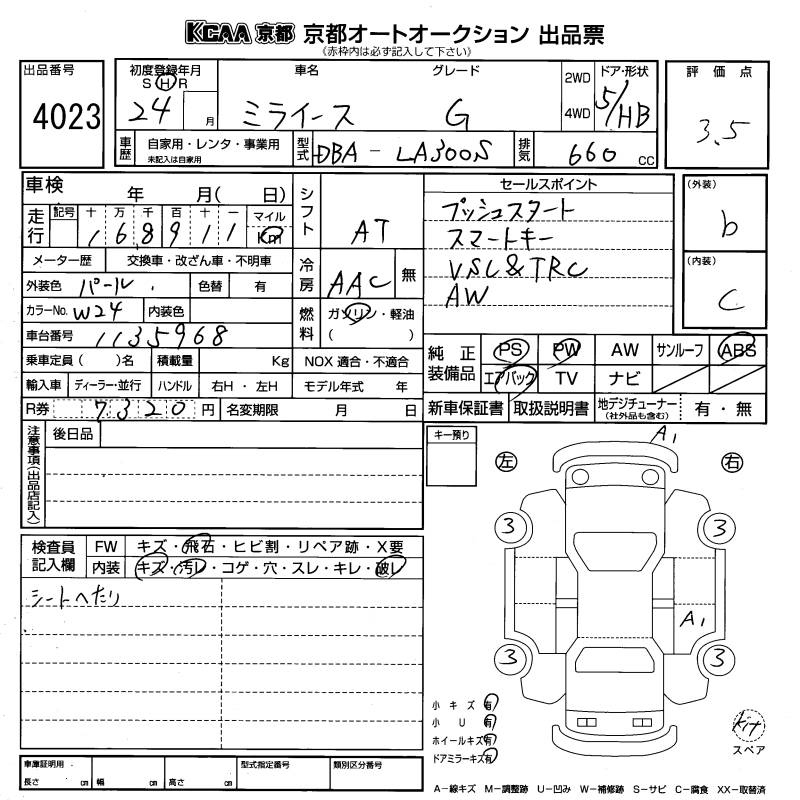 KCAA 京都 京都オートオークション 出品票
(赤枠内は必ず記入して下さい)
出品番号 4023
初度登録年月 S H R 24 月
車名 ミライース
グレード G
2WD 4WD
ドア・形状 5/HB
評価点 3.5
車歴 自家用・レンタ・事業用
未記入は自家用
型式 DBA - LA300S
排気 660 CC
車検 年 月( 日)
走行 記号 十 万 千 百 十 一 マイル Km
1 6 8 9 1 1
メーター歴 交換車・改ざん車・不明車
外装色 パール 色替 有
カラーNo. W24 内装色
車台番号 1135968
乗車定員( )名 積載量 Kg NOX 適合・不適合
輸入車 ディーラー・並行 ハンドル 右H・左H モデル年式 年
R券 7320円 名変期限 月 日
シフト AT
冷房 AAC 無
燃料 ガソリン・軽油
( )
セールスポイント
プッシュスタート
スマートキー
VSC&TRC
AW
(外装) b
(内装) C
純正装備品 PS PW AW サンルーフ ABS
エアバック TV ナビ
新車保証書 取扱説明書 地デジチューナー (社外品も含む) 有・無
注意事項(出品店記入) 後日品
キー預り
左 右
A1
3 3
A1
3 3
検査員記入欄 FW キズ・飛石・ヒビ割・リペア跡・X要
内装 キズ・汚レ・コゲ・穴・スレ・キレ・破レ
シートへたり
小キズ 有
小U 有
ホイールキズ 有
ドアミラーキズ 有
kit
スペア
車庫証明用 長さ cm 幅 cm 高さ cm 型式指定番号 類別区分番号
A-線キズ M-調整跡 U-凹み W-補修跡 S-サビ C-腐食 XX-取替済